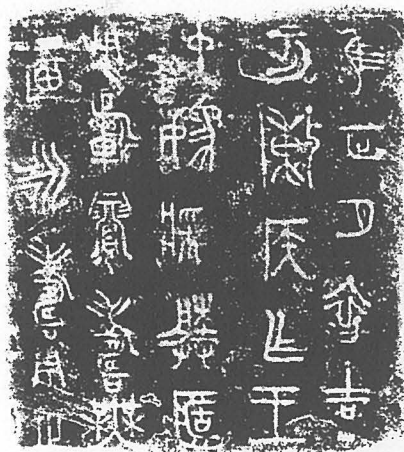 隹正月初吉
丁亥陳侯乍王
中媯媵
用祈眉壽無
疆永壽用之